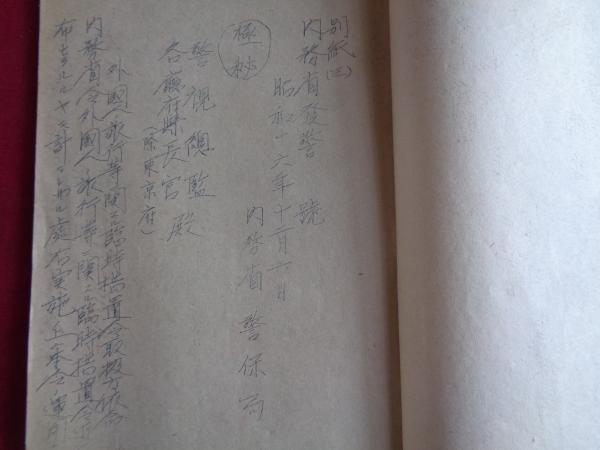 別紙(三)
内務省發警 號
昭和十六年十二月 日
内務省警保局
極秘
警視總監
各廳府縣長官殿
(除東京府)
外國人旅行等ニ關スル臨時措置令取扱方依命
内務省令外國人ノ旅行等ニ關スル臨時措置令
布セラルルヤニ計 處右實施上本令ノ運用